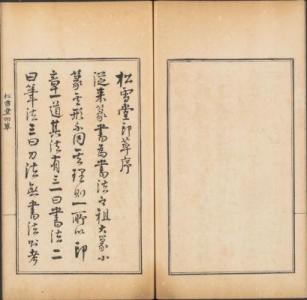 松雪堂印萃序
從來篆書為書法之祖大篆小
篆雲形不同其理則一所以印
章一道其法有三一曰書法二
曰筆法三曰刀法無書法則考
松雪堂印萃